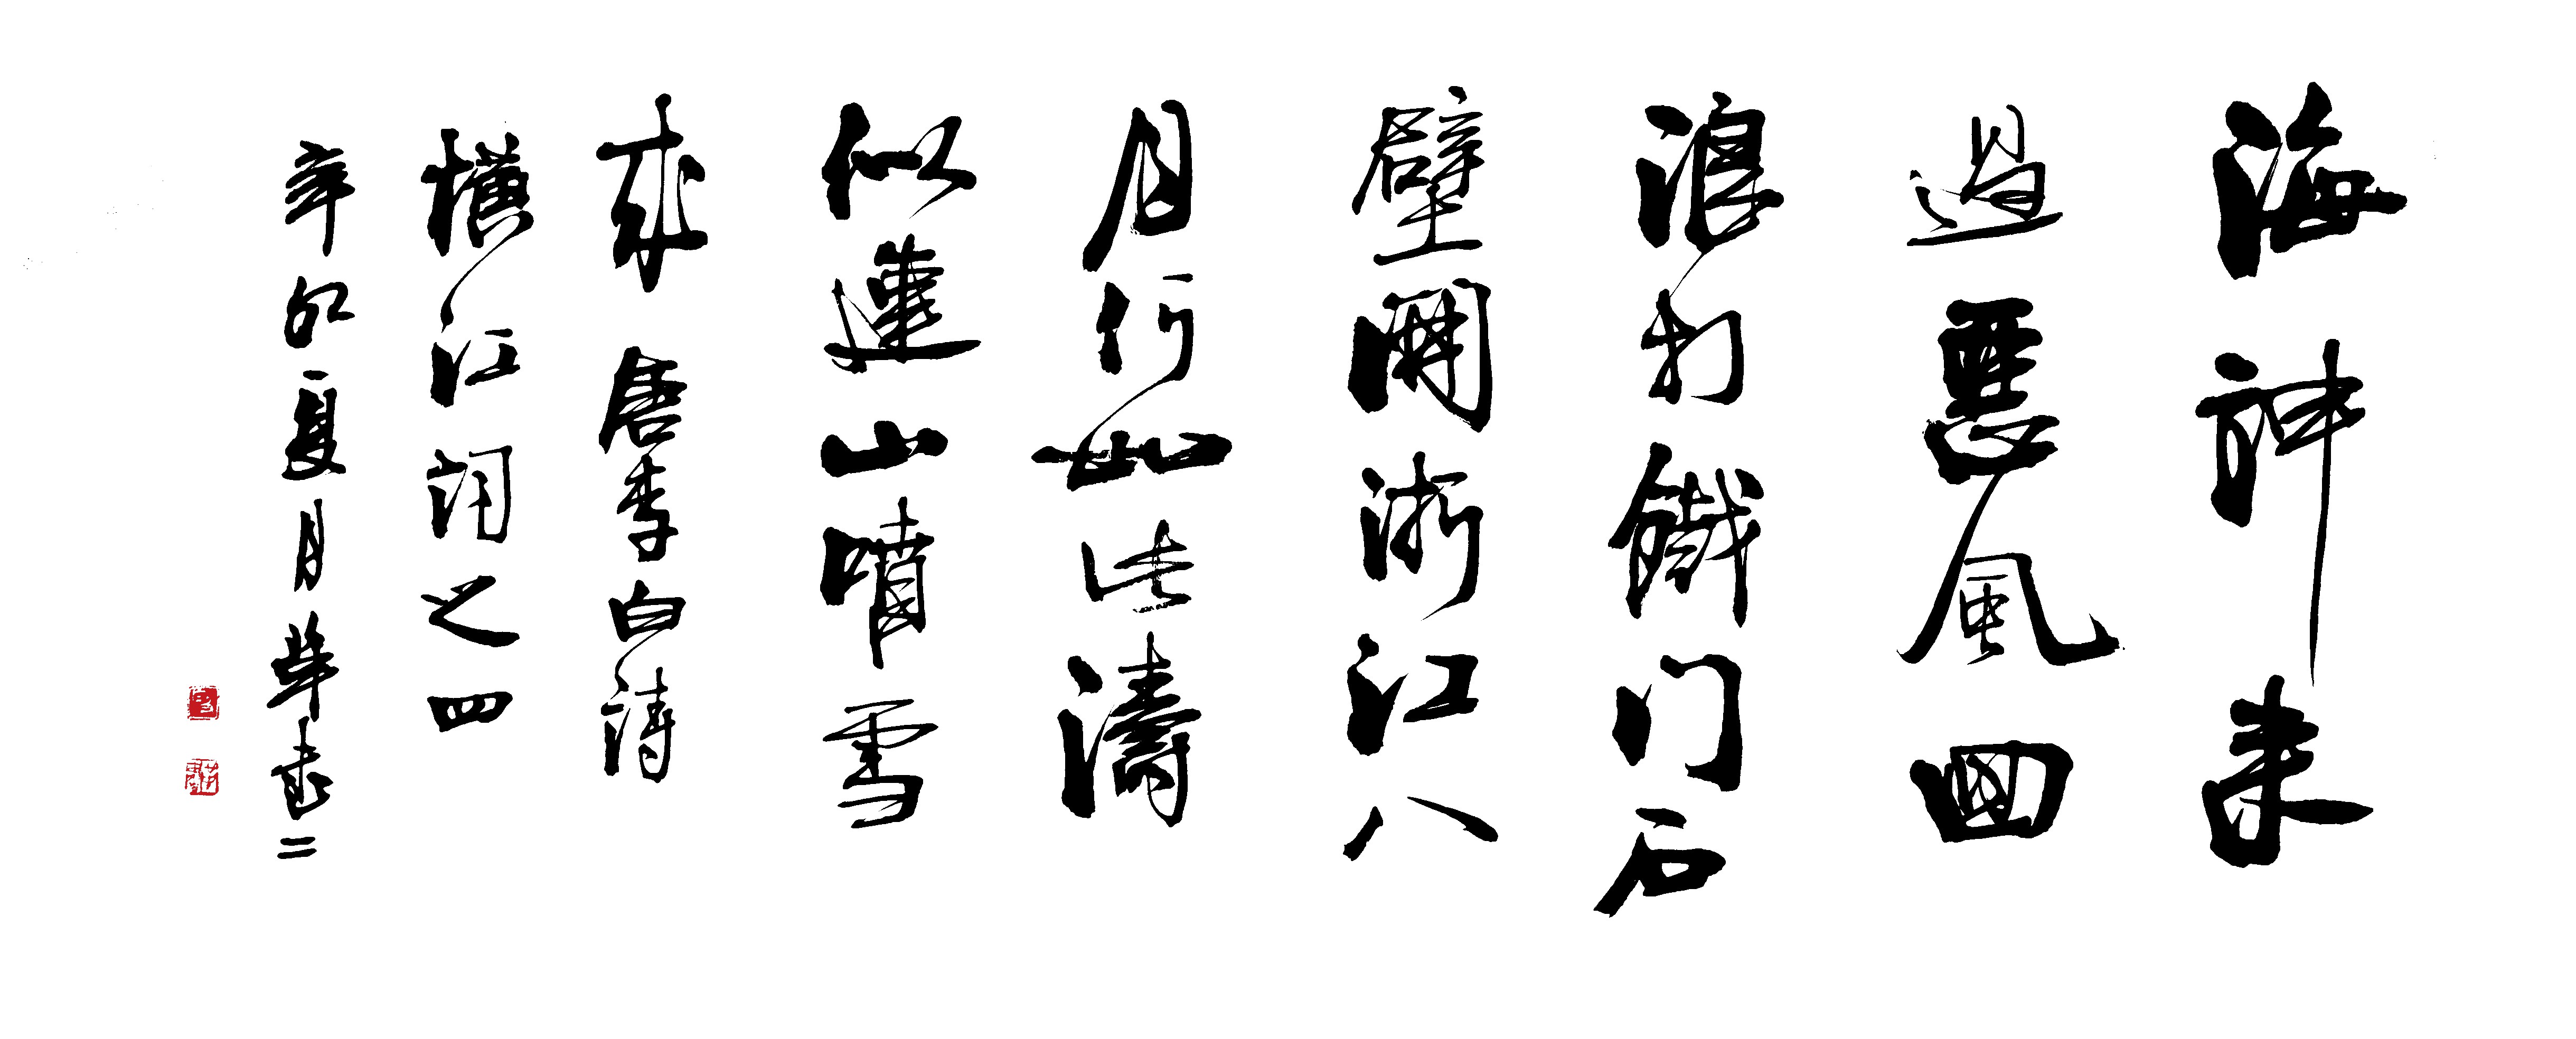 海神来
過惡風回
浪打鐵门石
壁開浙江八
月何如此濤
似連山噴雪
来 唐李白詩
橫江詞之四
辛卯夏月華